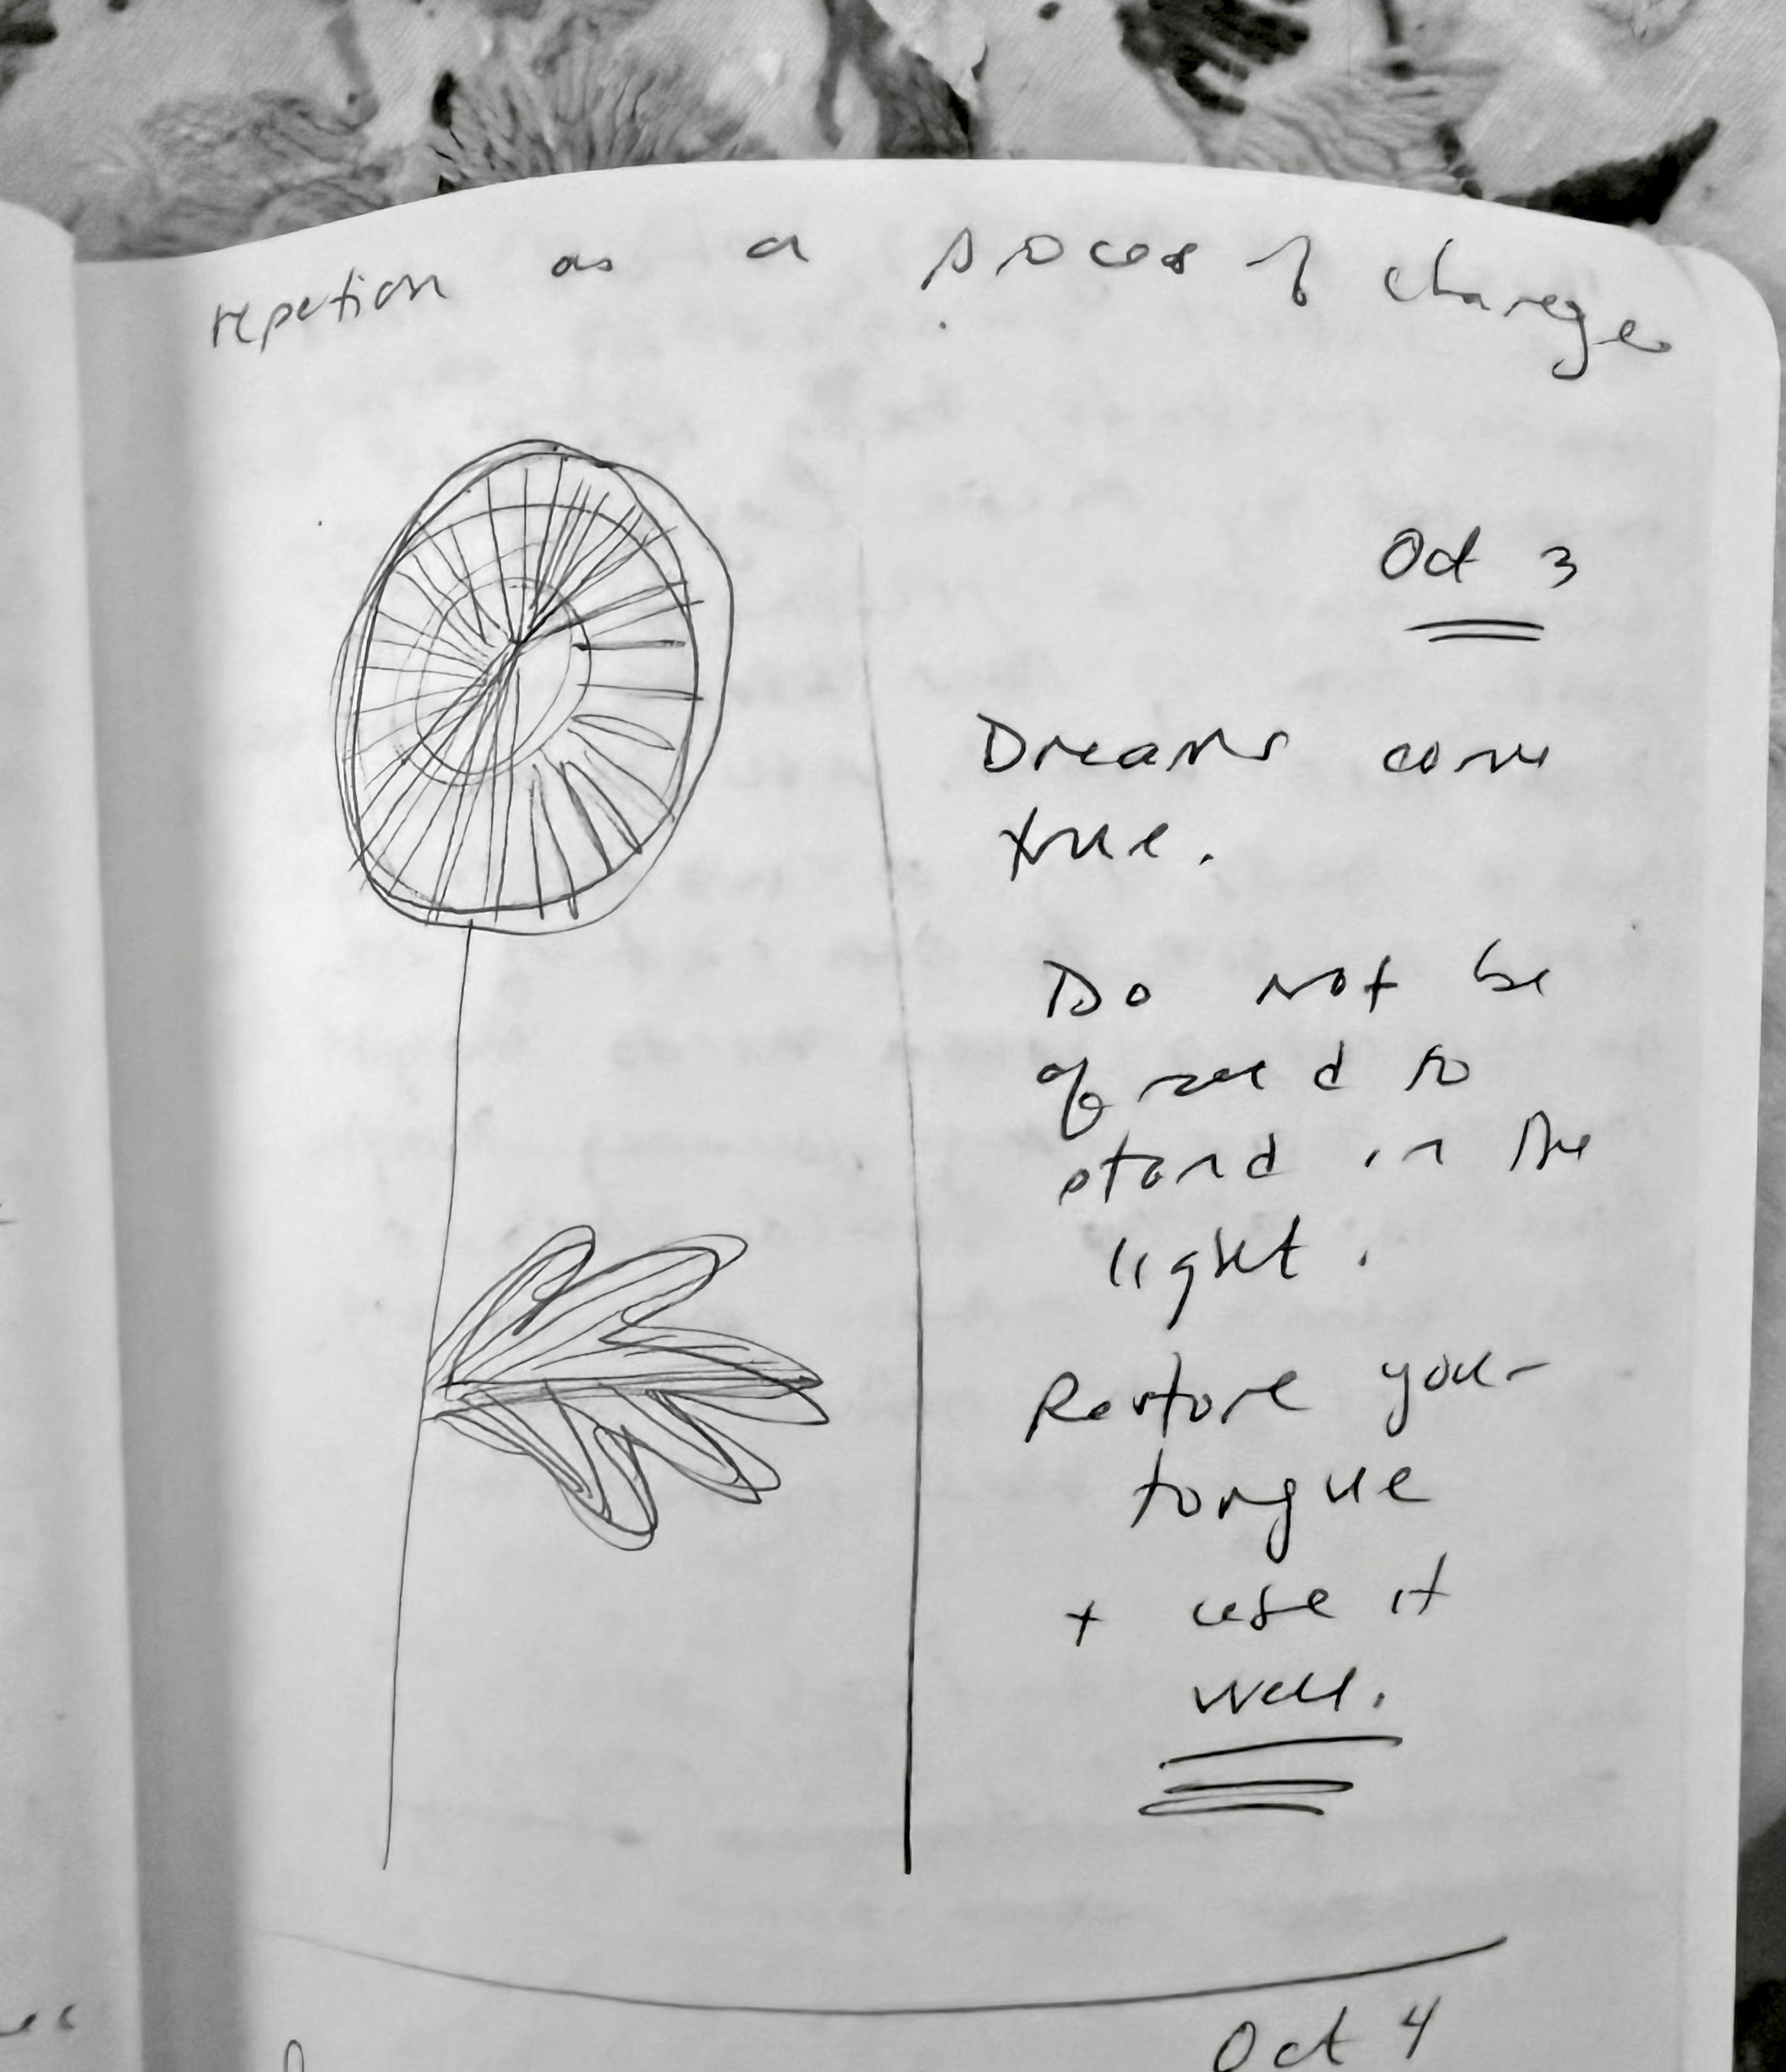 repetion as a proces of change
Oct 3
Dreams come
true.
Do not be
afraid to
stand in the
light.
Restore your
tongue
+ use it
well.
Oct 4